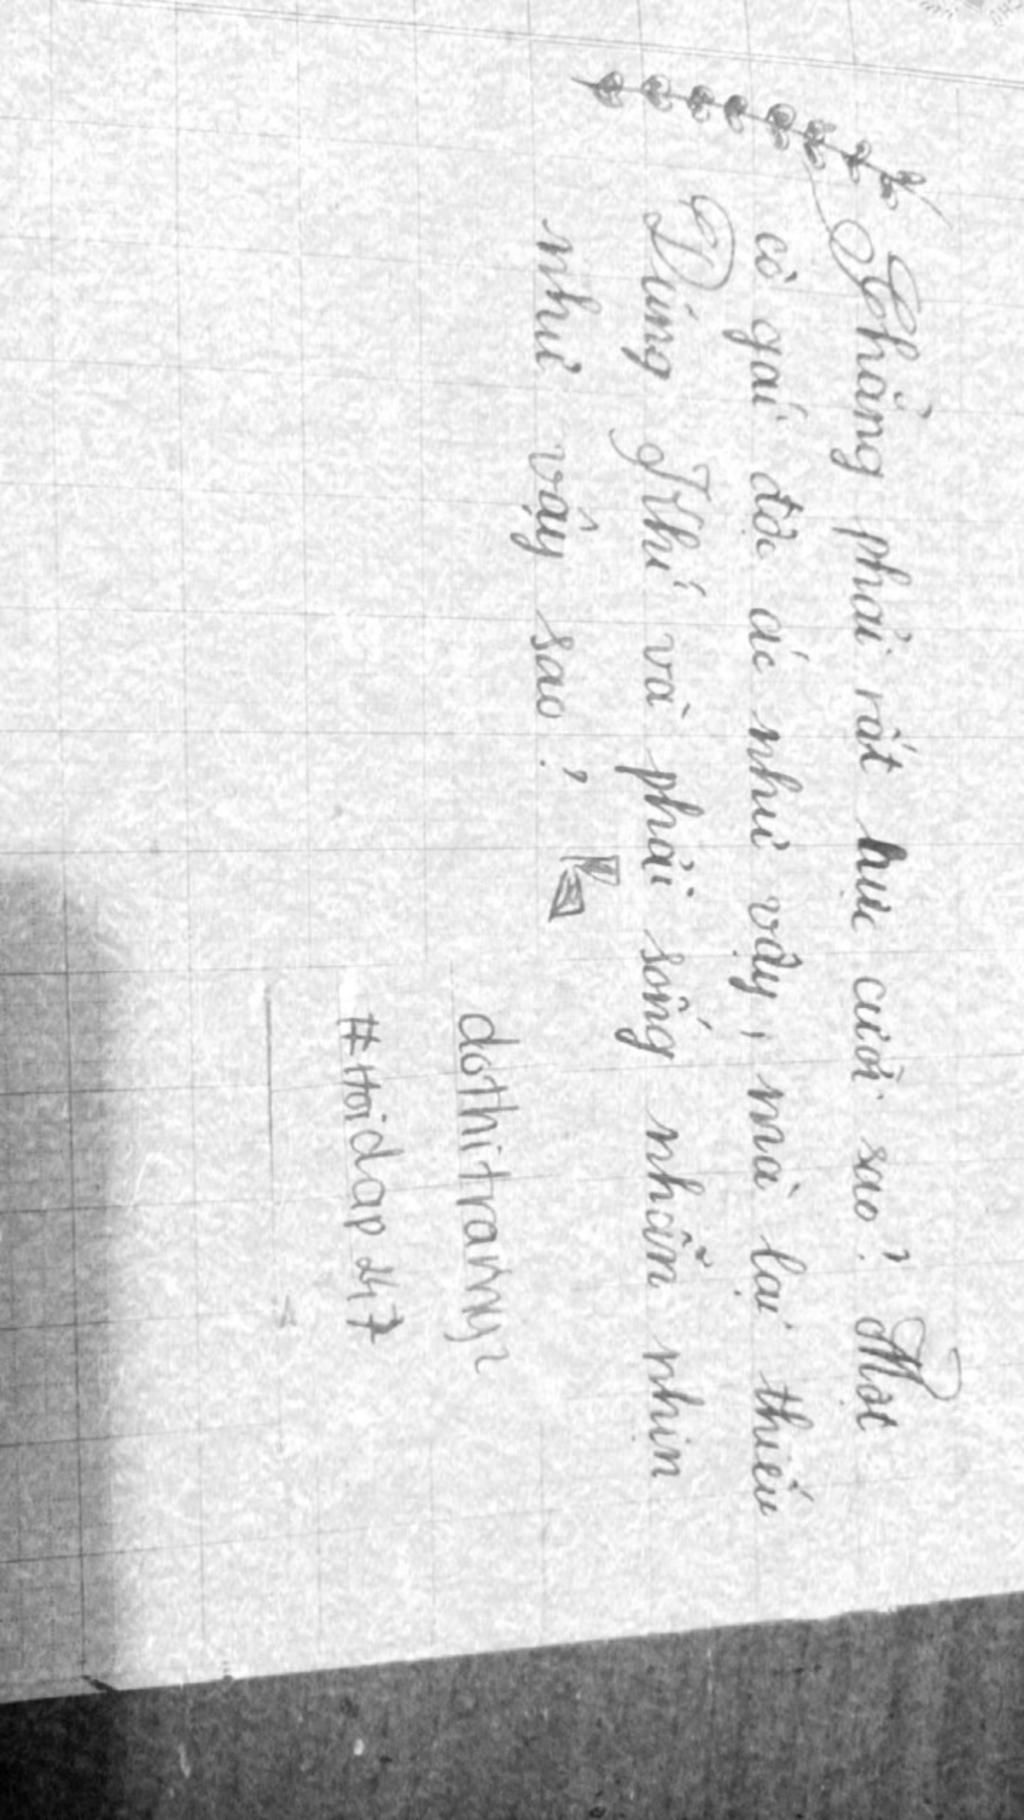 Chẳng phải rất nực cười sao? Một
cô gái độc ác như vậy, mà lại thiếu
Dũng Khí và phải sống nhẫn nhịn
như vậy sao?
dothitramy2
#Hoidap247